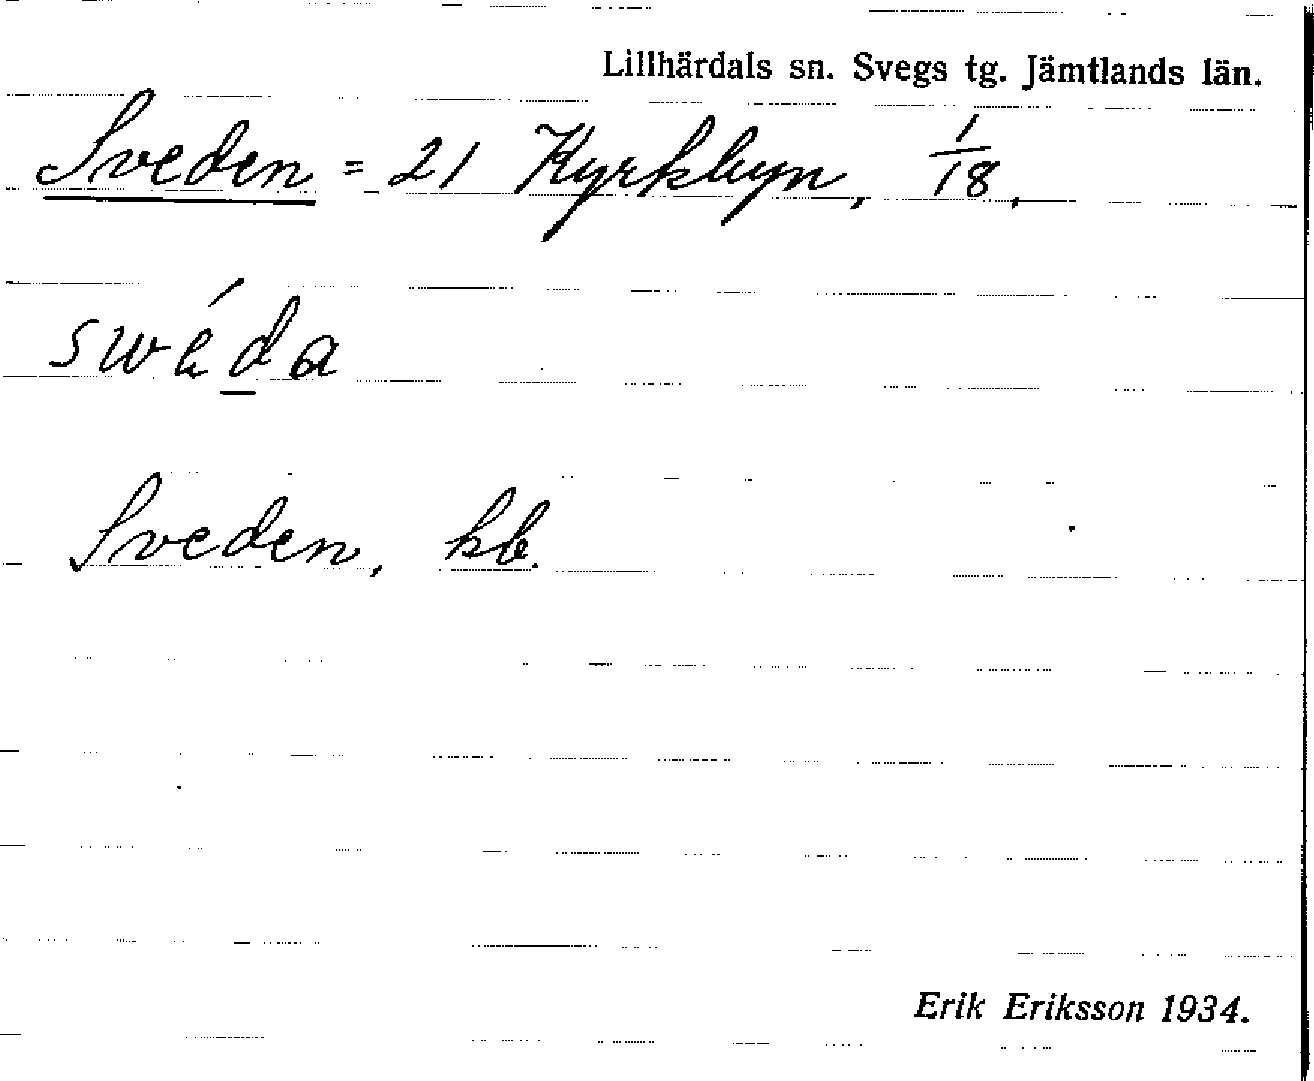 Lillhärdals sn. Svegs tg. Jämtlands län.
Sveden = 21 Kyrkbyn, 1/18,
Sveden, kb.
Erik Eriksson 1934.